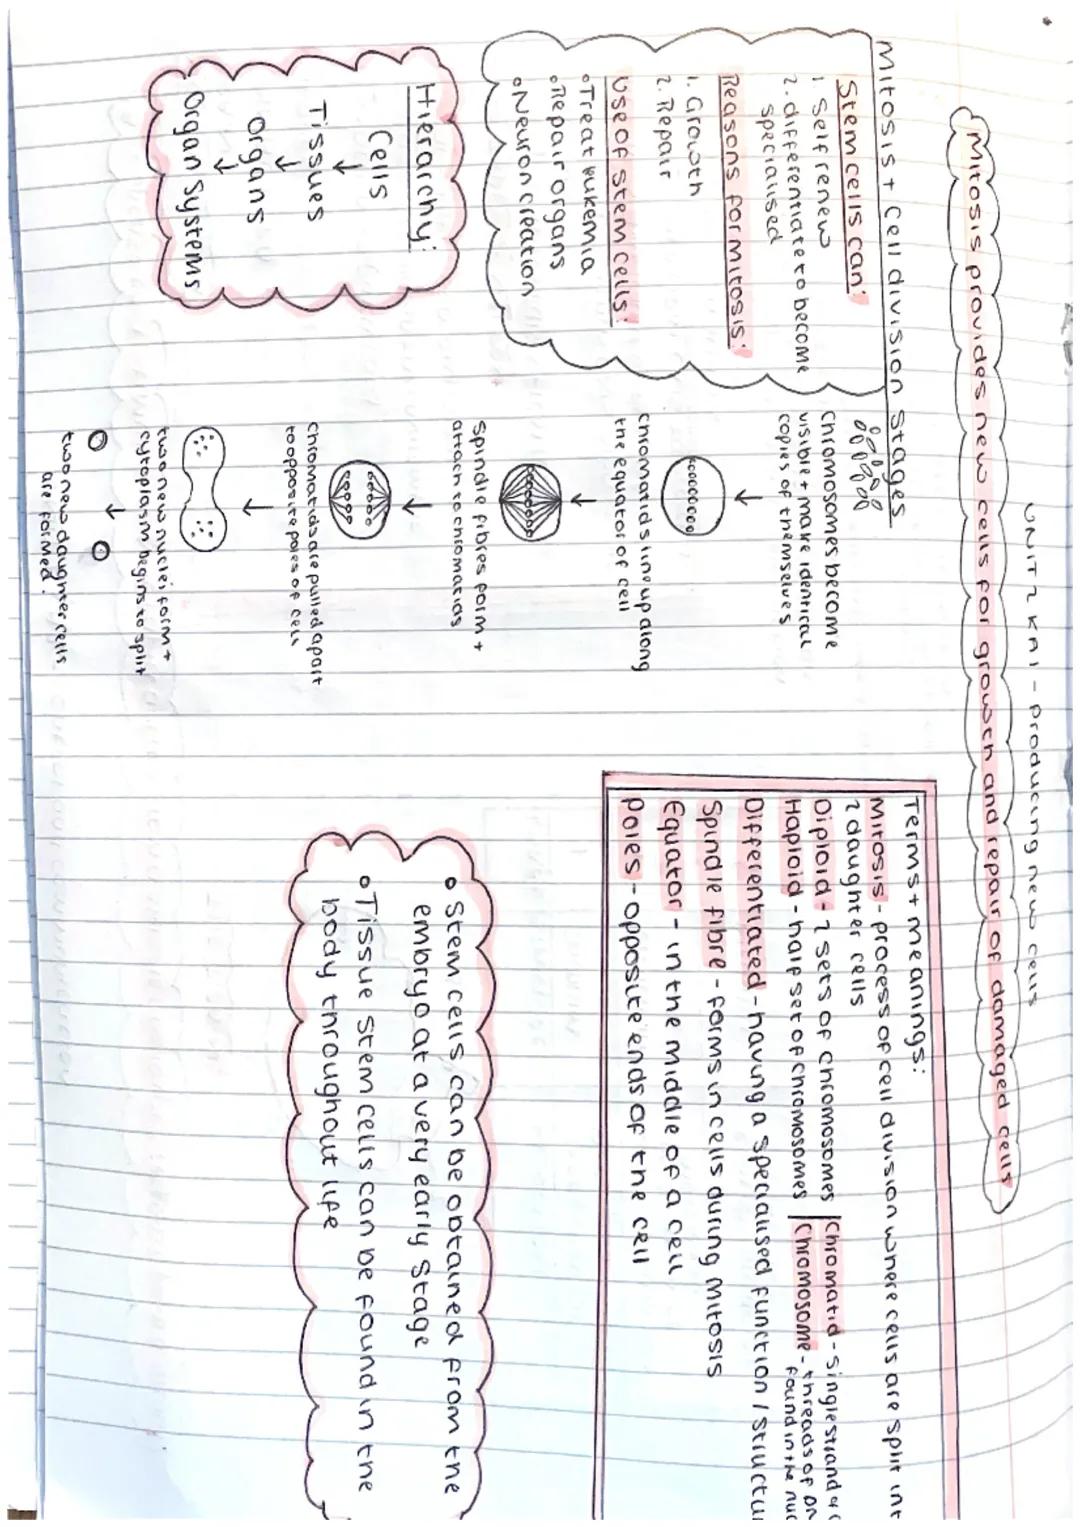 UNIT 2 KA1 - Producing new cells
Mitosis provides new cells for growth and repair of damaged cells
Mitosis + cell division stages
Stem cells can:
1. Self renew
2. differentiate to become
specialised
Reasons for mitosis:
1. Growth
2. Repair
Use of stem cells:
•Treat lukemia
•Repair organs
•Neuron creation
Hierarchy:
Cells
↓
Tissues
↓
Organs
↓
Organ Systems
Chromosomes become
visible + make identical
copies of themselves
↓
chromatids line up along
the equator of cell
↓
Spindle fibres form +
attach to chromatids
↓
Chromatids are pulled apart
to opposite poles of cell
↓
two new nuclei form +
cytoplasm begins to split
↓
two new daughter cells
are formed.
Terms + meanings:
Mitosis - process of cell division where cells are split int
2 daughter cells
Diploid - 2 sets of chromosomes
Haploid - half set of chromosomes
Chromatid - single strand of c
Chromosome - threads of DN
found in the nuc
Differentiated - having a specialised function / structu
Spindle fibre - forms in cells during mitosis
Equator - in the middle of a cell
Poles - opposite ends of the cell
• Stem cells can be obtained from the
embryo at a very early stage
•Tissue stem cells can be found in the
body throughout life